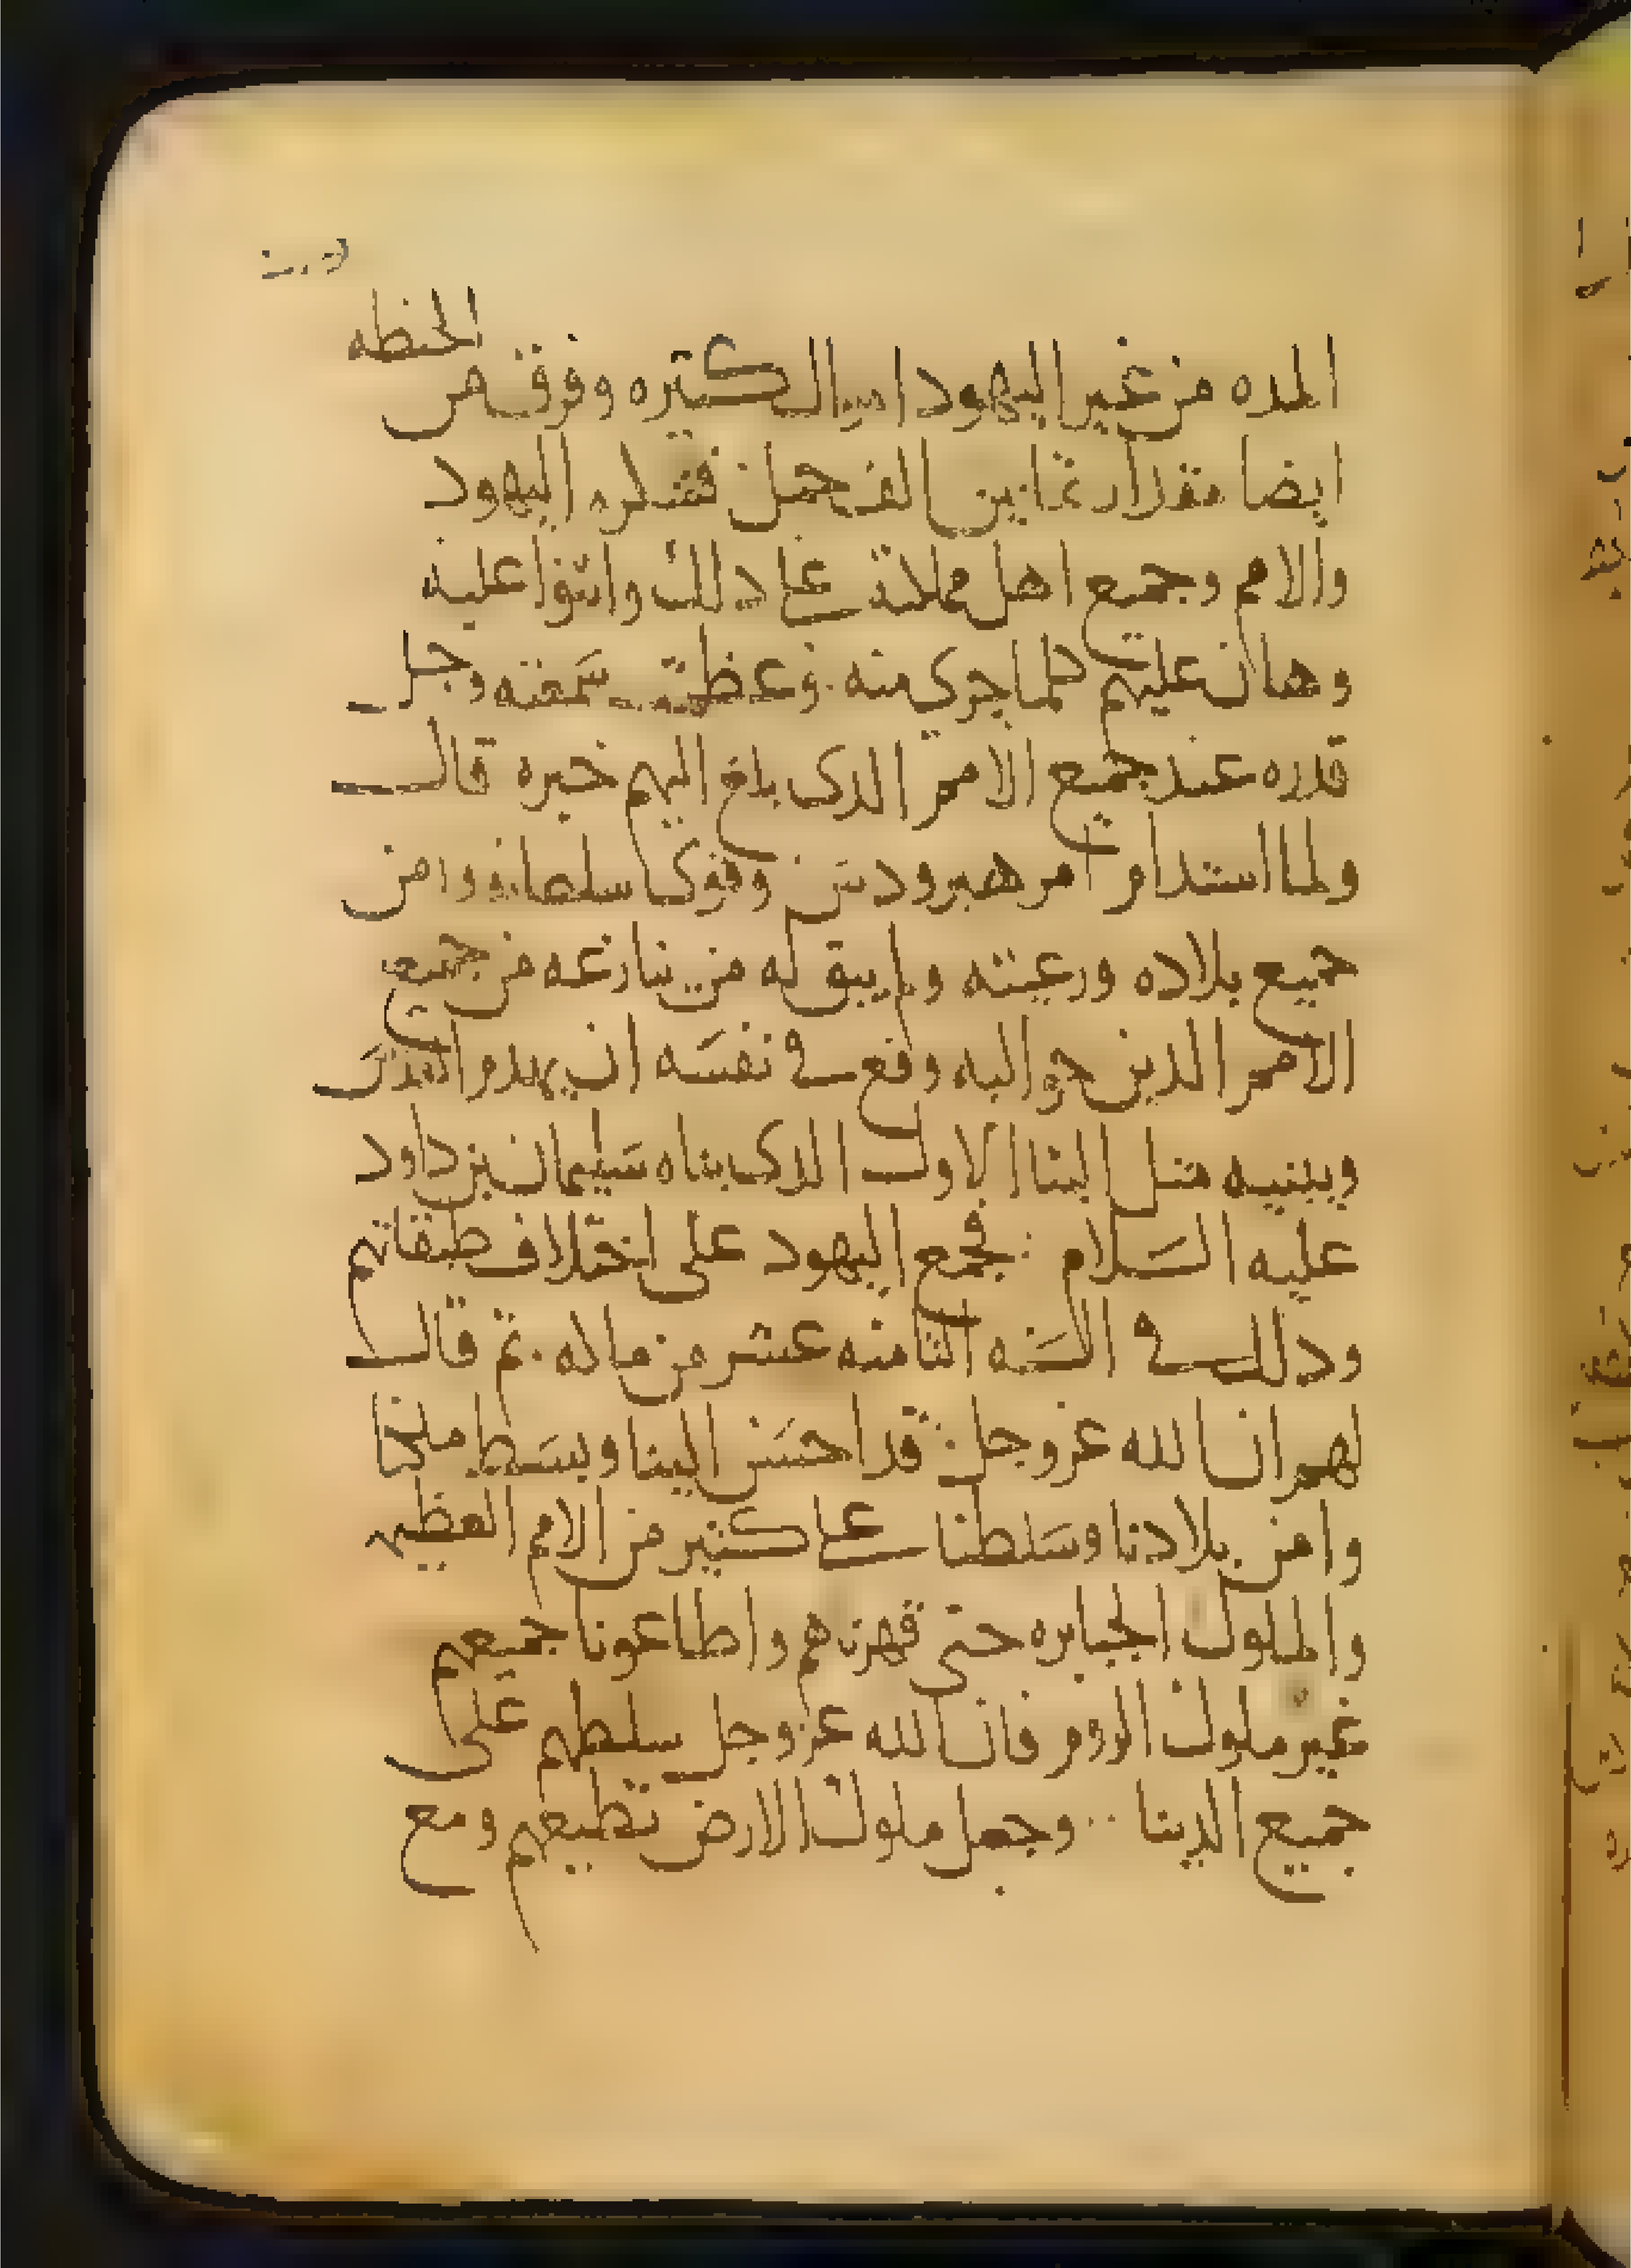 الحنطه
المده من غير اليهود الكثيره وفرق من
ايضا مقدار ثمانين الف حمل فشكره اليهود
والامم وجميع اهل مملكته على دلك واثنوا عليه
وهان عليهم كلما جري منه وعظمت سمعته وجل
قدره عند جميع الامم الدى بلغ اليهم خبره قال
ولما استدام امر هيرودس وقوى سلطانه وامن
جميع بلاده ورعيته ولم يبق له من ينازعه من جميع
الامم الدين حواليه وقع في نفسه ان يهدم القدس
ويبنيه مثل البنا الاول الدى بناه سليمان بن داود
عليه السلام فجمع اليهود على اختلاف طبقاتهم
ودلك في السنه الثامنه عشر من ماله ثم قال
لهم ان الله عز وجل قد احسن الينا وبسط ملكنا
وامن بلادنا وسلطنا على كثير من الامم العظيمه
والملوك الجبابره حتى قهرناهم واطاعونا جميعهم
غير ملوك الروم فان الله عز وجل سلطهم على
جميع الدنيا وجعل ملوك الارض تطيعهم ومع